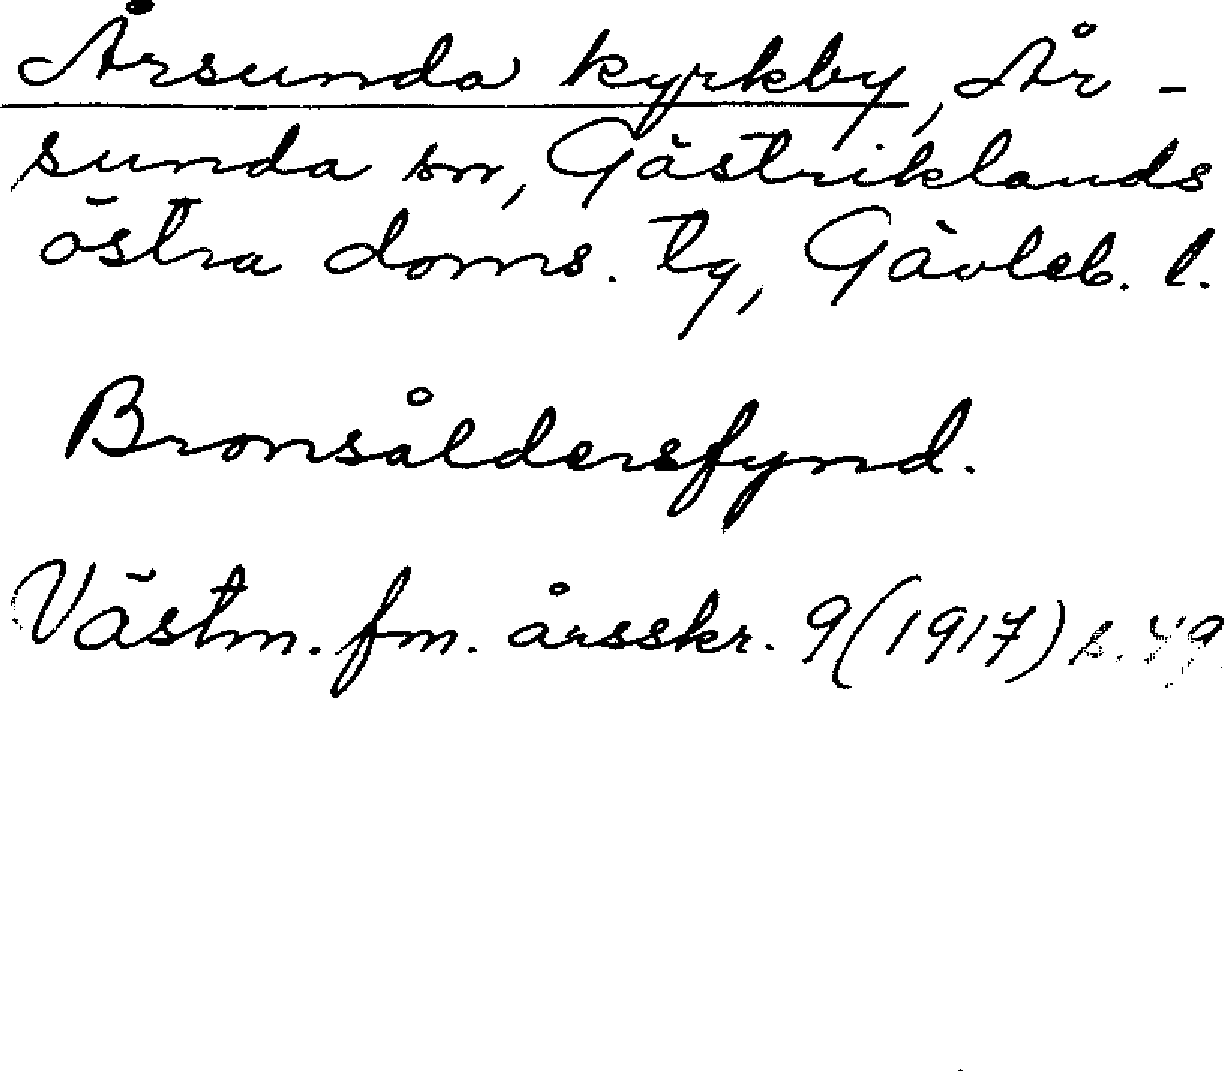 Årsunda kyrkby, År-
sunda sn, Gästriklands
östra doms. tg, Gävleb. l.
Bronsåldersfynd.
Västm. fm. årsskr. 9(1917) s. 49